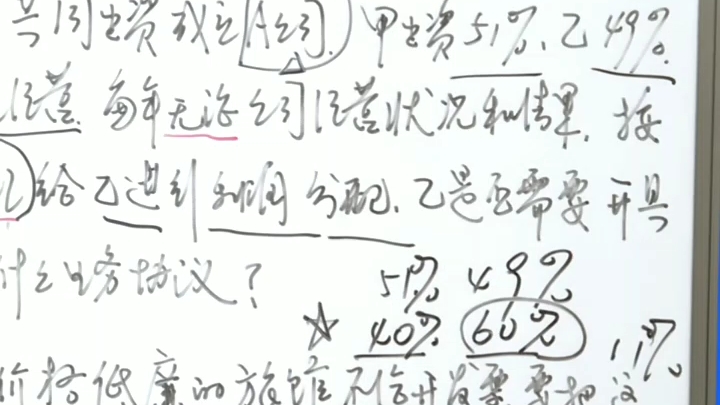 共同出资成立A公司. 甲出资51%、乙49%.
经营. 每年无论公司经营状况和结果, 按
给乙进行利润分配、乙是否需要开具
什么业务协议?
51% 49%
☆ 40% 60% 11%
价格低廉的旅馆 开发票 要把这